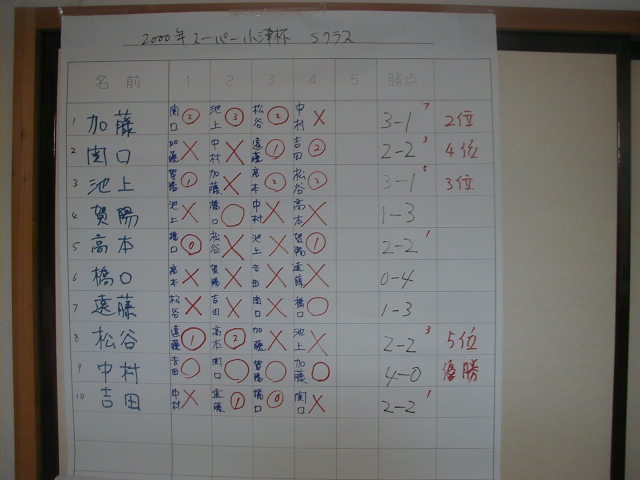 2000年スーパー小津杯 Sクラス
名前 1 2 3 4 5 勝点
1 加藤 関口② 池上③ 松谷② 中村× 3-1 7 2位
2 関口 加藤× 中村× 遠藤① 吉田② 2-2 3 4位
3 池上 賀陽① 加藤× 高本② 松谷② 3-1 5 3位
4 賀陽 池上× 橋口○ 中村× 高本× 1-3
5 高本 橋口⓪ 松谷× 池上× 賀陽① 2-2 1
6 橋口 高本× 賀陽× 吉田× 遠藤× 0-4
7 遠藤 松谷× 吉田× 関口× 橋口○ 1-3
8 松谷 遠藤① 高本② 加藤× 池上× 2-2 3 5位
9 中村 吉田○ 関口○ 賀陽○ 加藤○ 4-0 優勝
10 吉田 中村× 遠藤① 橋口⓪ 関口× 2-2 1